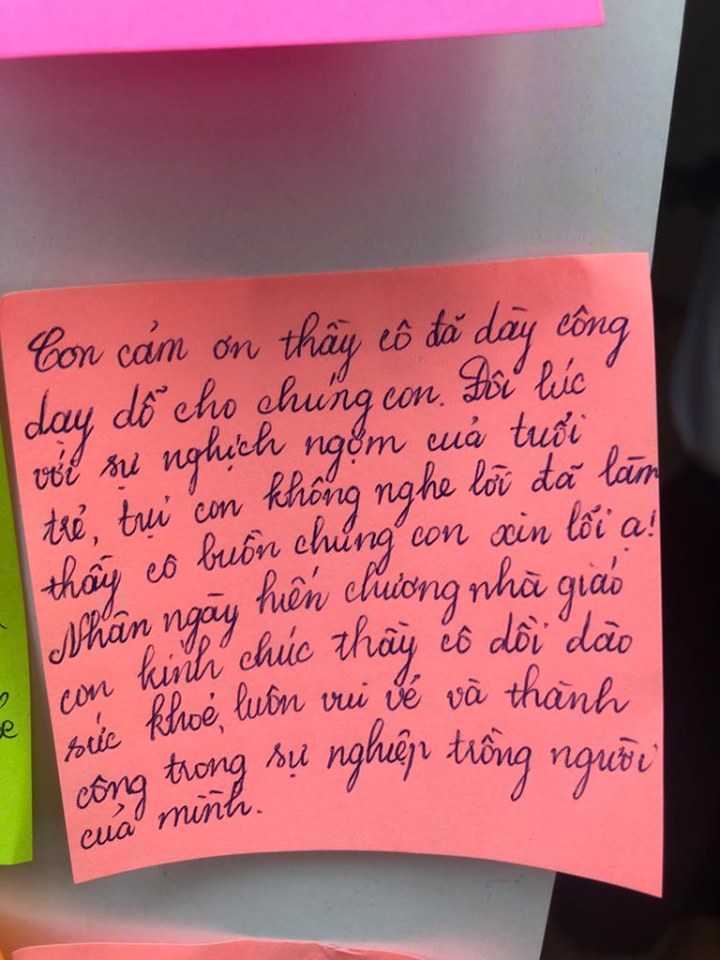 Con cảm ơn thầy cô đã dày công
dạy dỗ cho chúng con. Đôi lúc
với sự nghịch ngợm cuả tuổi
trẻ, tụi con không nghe lời đã làm
thầy cô buồn chúng con xin lỗi ạ!
Nhân ngày hiến chương nhà giáo
con kính chúc thầy cô dồi dào
sức khoẻ, luôn vui vẻ và thành
công trong sự nghiệp trồng người
cuả mình.